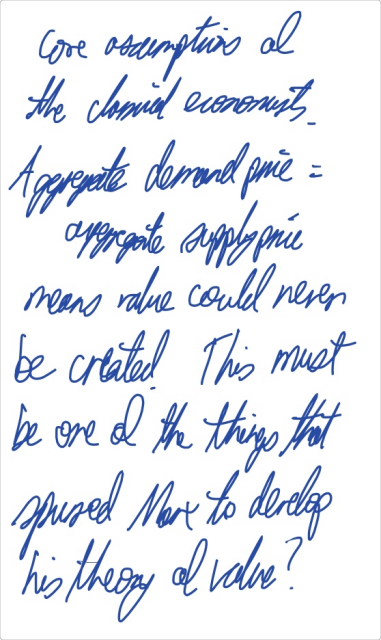 Core assumptions of
the classical economists.
Aggregate demand price =
aggregate supply price
means value could never
be created. This must
be one of the things that
spursed Marx to develop
his theory of value?